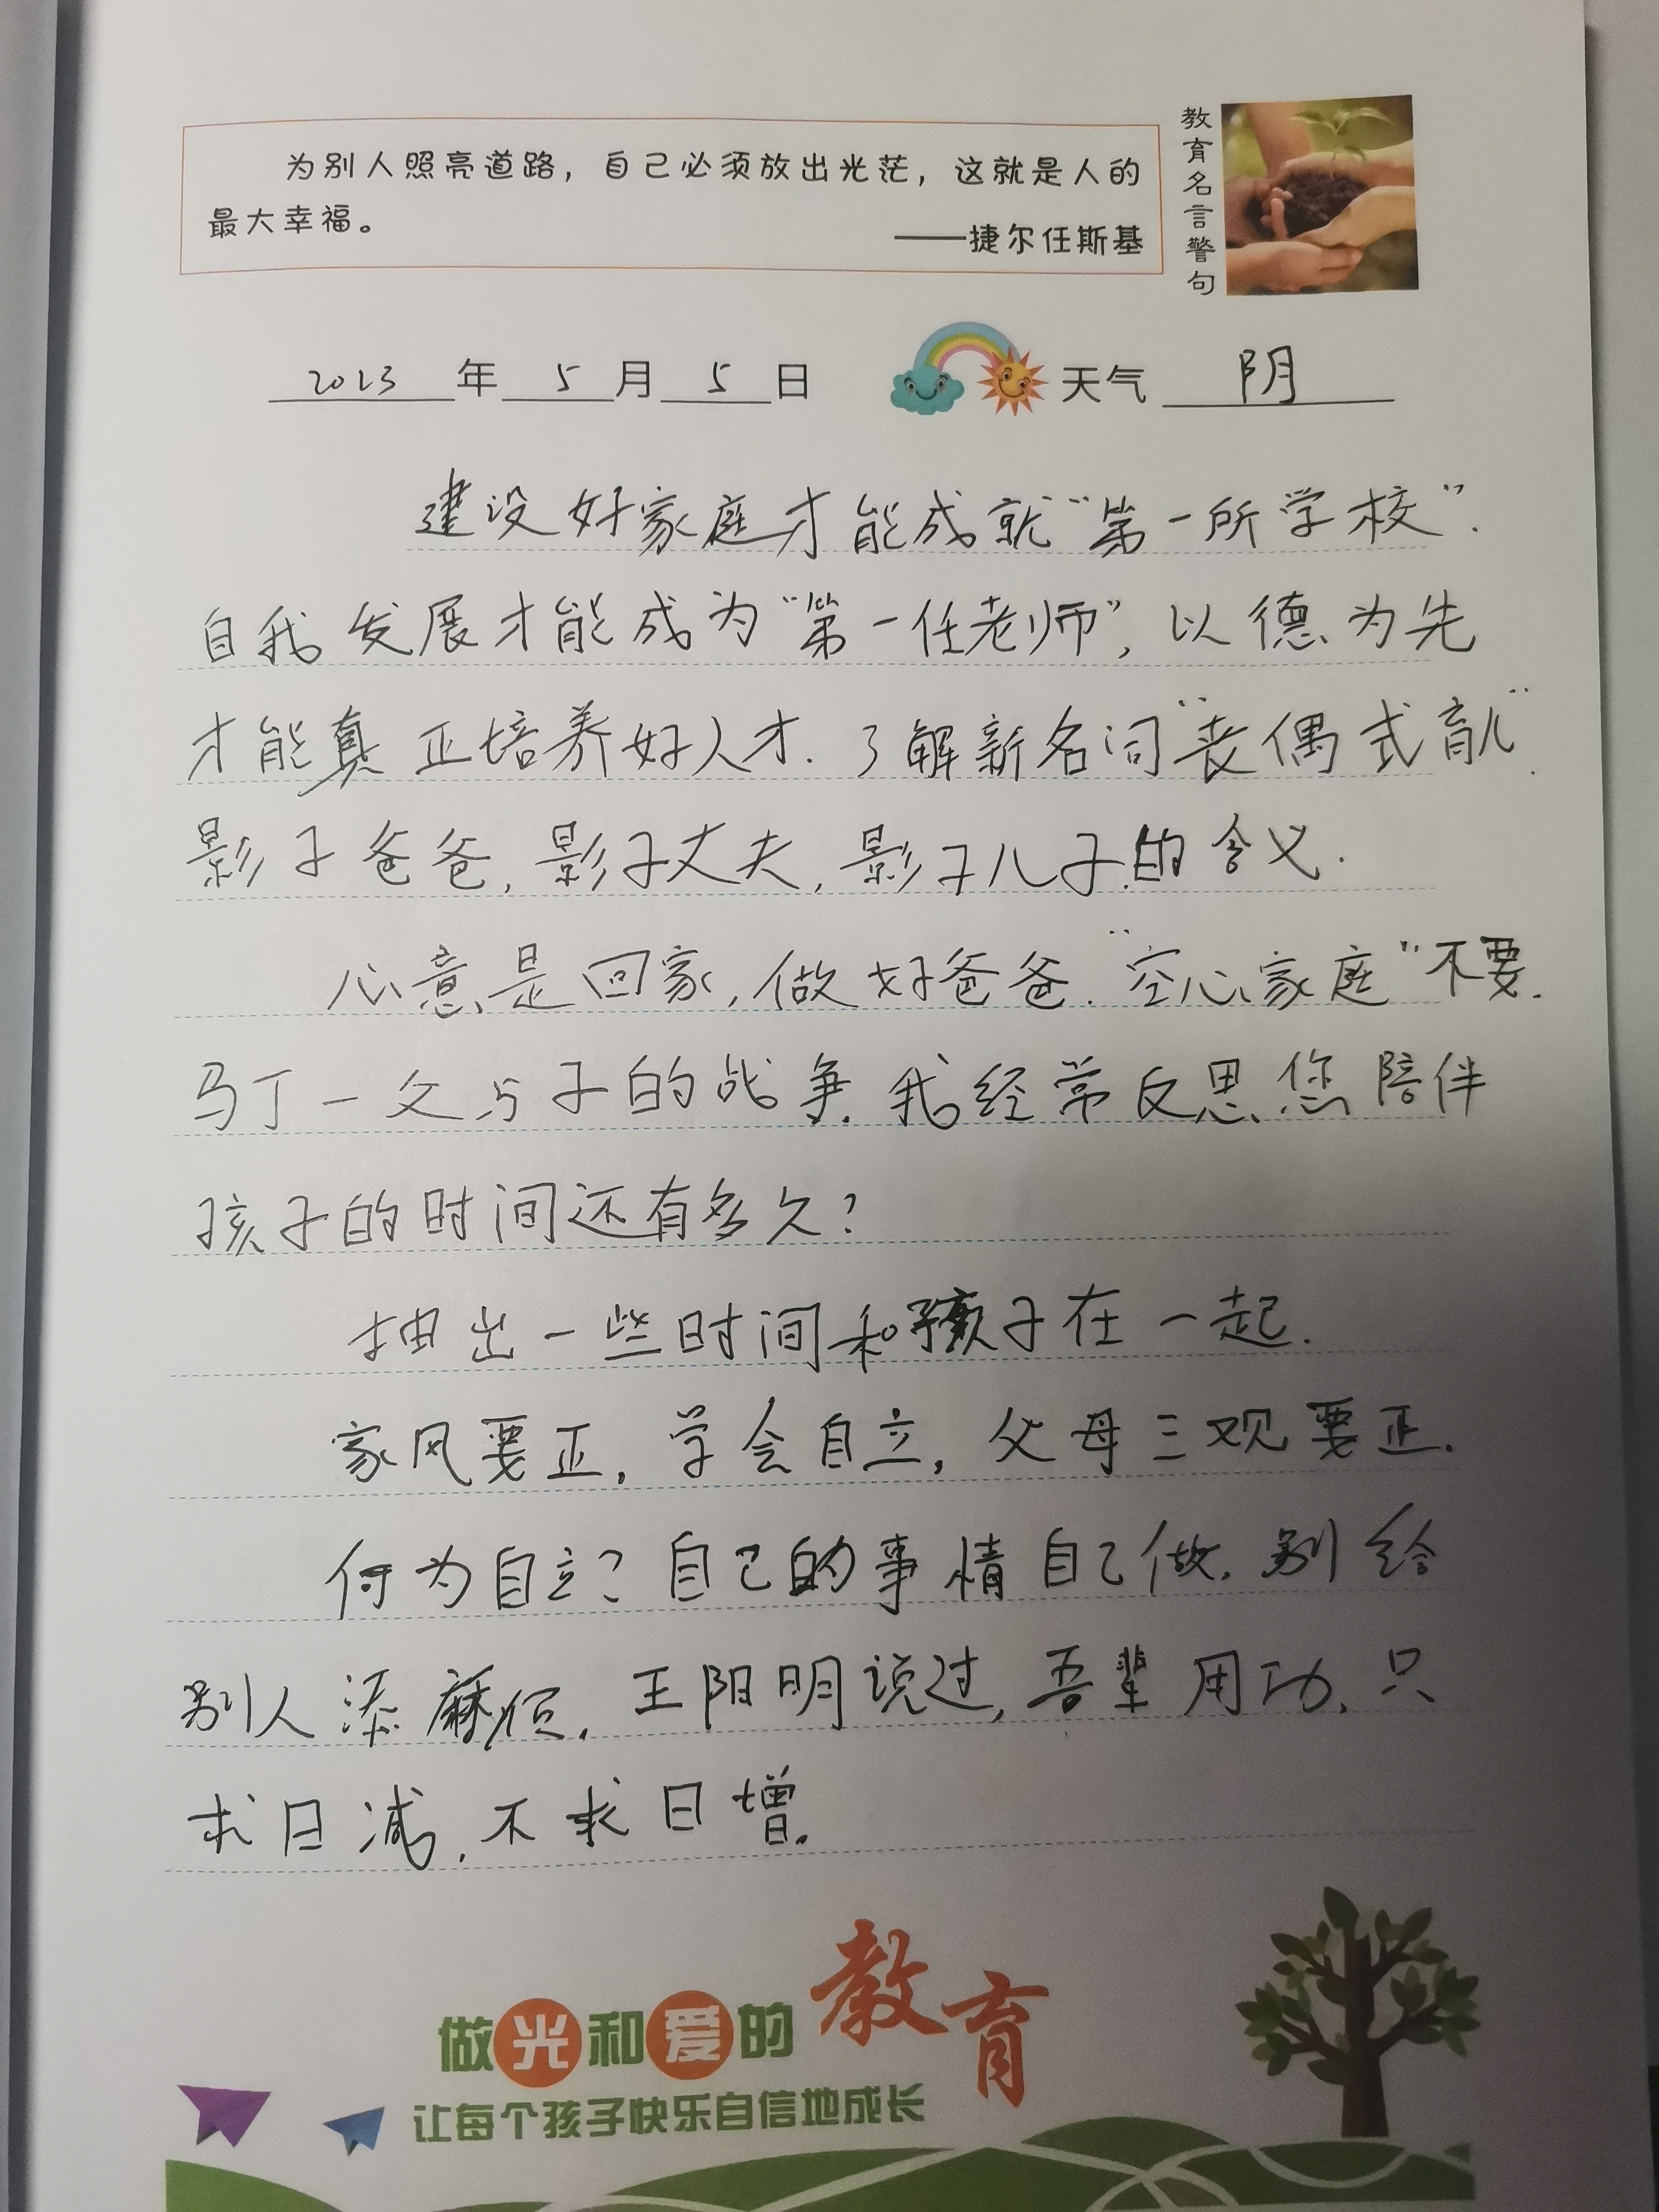 为别人照亮道路，自己必须放出光茫，这就是人的
最大幸福。
——捷尔任斯基
教育名言警句
2023年5月5日 天气 阴
建设好家庭才能成就“第一所学校”.
自我发展才能成为“第一任老师”，以德为先
才能真正培养好人才.了解新名词“丧偶式育儿”.
影子爸爸，影子丈夫，影子儿子的含义.
心意是回家，做好爸爸.“空心家庭”不要.
马丁一父与子的战争.我经常反思，您陪伴
孩子的时间还有多久？
抽出一些时间和孩子在一起.
家风要正，学会自立，父母三观要正.
何为自立？自己的事情自己做.别给
别人添麻烦.王阳明说过，吾辈用功，只
求日减，不求日增.
做光和爱的教育
让每个孩子快乐自信地成长